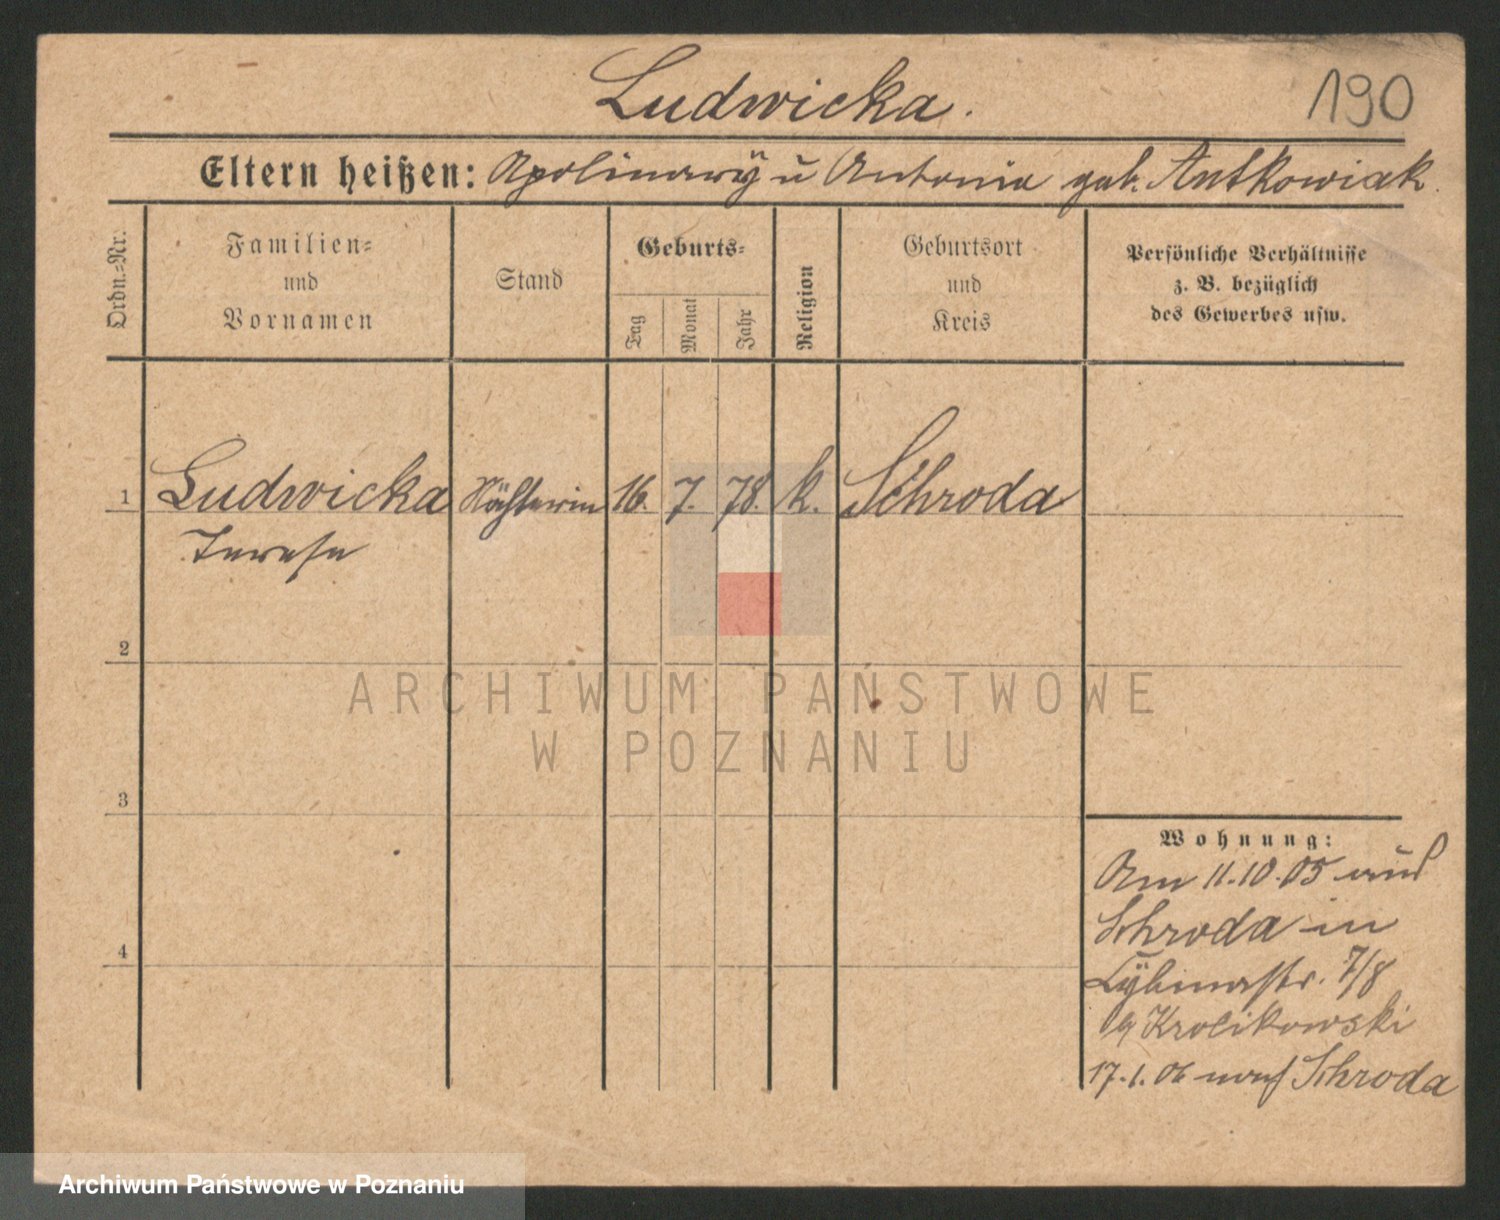 Ludwicka.
190
Eltern heißen: Apolinary u Antonia geb. Antkowiak.
Ordn.=Nr.
Familien=
und
Vornamen
Stand
Geburts=
Tag
Monat
Jahr
Religion
Geburtsort
und
Kreis
Persönliche Verhältnisse
z. B. bezüglich
des Gewerbes usw.
1 Ludwicka Nähterin 16. 7. 78. k. Schroda
Terese
2
ARCHIWUM PAŃSTWOWE
W POZNANIU
3
4
Wohnung:
Am 11.10.05 aus
Schroda in
Cybinastr. 7/8
b/ Krolikowski
17.1.06 nach Schroda
Archiwum Państwowe w Poznaniu